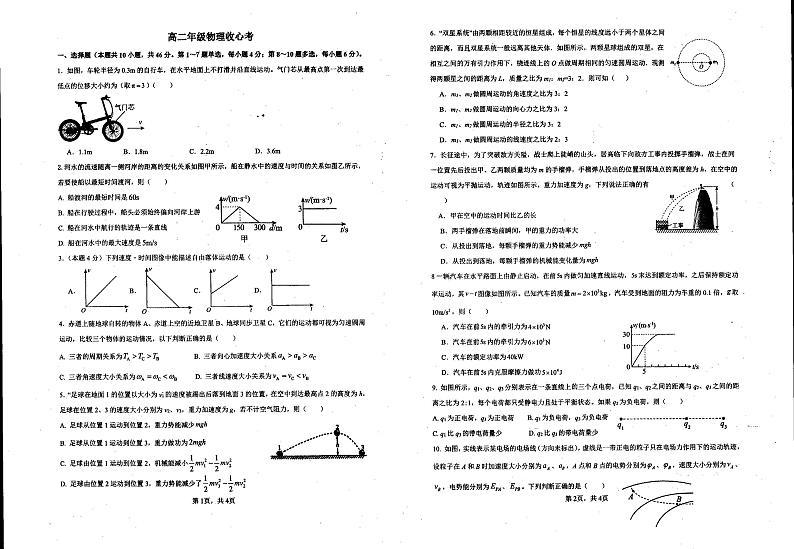 高二年级物理收心考
一、选择题（本题共 10 小题，共 46 分。第 1～7 题单选，每小题 4 分；第 8～10 题多选，每小题 6 分）。
1. 如图，车轮半径为 0.3m 的自行车，在水平地面上不打滑并沿直线运动。气门芯从最高点第一次到达最
低点的位移大小约为（取 π = 3）（ ）
气门芯
v
A. 1.1m B. 1.8m C. 2.2m D. 3.6m
2. 河水的流速随离一侧河岸的距离的变化关系如图甲所示，船在静水中的速度与时间的关系如图乙所示，
若要使船以最短时间渡河，则（ ）
A. 船渡河的最短时间是 60s
B. 船在行驶过程中，船头必须始终偏向河岸上游
C. 船在河水中航行的轨迹是一条直线
D. 船在河水中的最大速度是 5m/s
v/(m·s⁻¹)
4
0 150 300 d/m
甲
v/(m·s⁻¹)
3
0 t/s
乙
3.（本题 4 分）下列速度 - 时间图像中能描述自由落体运动的是（ ）
A. B. C. D.
4. 赤道上随地球自转的物体 A、赤道上空的近地卫星 B、地球同步卫星 C，它们的运动都可视为匀速圆周
运动，比较三个物体的运动情况，以下判断正确的是（ ）
A. 三者的周期关系为 T_A > T_C > T_B B. 三者向心加速度大小关系 a_A > a_B > a_C
C. 三者角速度大小关系为 ω_A = ω_C < ω_B D. 三者线速度大小关系为 v_A = v_C < v_B
5. 足球在地面 1 的位置以大小为 v₁ 的速度被踢出后落到地面 3 的位置，在空中到达最高点 2 的高度为 h，
足球在位置 2、3 的速度大小分别为 v₂、v₃，重力加速度为 g，若不计空气阻力，则（ ）
A. 足球从位置 1 运动到位置 2，重力势能减少 mgh
B. 足球从位置 1 运动到位置 3，重力做功为 2mgh
C. 足球由位置 1 运动到位置 2，机械能减小 1/2 mv₁² − 1/2 mv₂²
D. 足球由位置 2 运动到位置 3，重力势能减少了 1/2 mv₃² − 1/2 mv₂²
1 2 3
第 1页，共 4页
6. “双星系统”由两颗相距较近的恒星组成，每个恒星的线度远小于两个星体之间
的距离，而且双星系统一般远离其他天体。如图所示，两颗星球组成的双星，在
相互之间的万有引力作用下，绕连线上的 O 点做周期相同的匀速圆周运动，现测
得两颗星之间的距离为 L，质量之比为 m₁：m₂=3：2。则可知（ ）
m₁ O m₂
A. m₁、m₂ 做圆周运动的角速度之比为 3：2
B. m₁、m₂ 做圆周运动的向心力之比为 3：2
C. m₁、m₂ 做圆周运动的半径之比为 3：2
D. m₁、m₂ 做圆周运动的线速度之比为 2：3
7. 长征途中，为了突破敌方关隘，战士爬上陡峭的山头，居高临下向敌方工事内投掷手榴弹，战士在同
一位置先后投出甲、乙两颗质量均为 m 的手榴弹，手榴弹从投出的位置到落地点的高度差为 h，在空中的
运动可视为平抛运动，轨迹如图所示，重力加速度为 g，下列说法正确的有 （
）
A. 甲在空中的运动时间比乙的长
B. 两手榴弹在落地前瞬间，甲的重力的功率大
C. 从投出到落地，每颗手榴弹的重力势能减少 mgh
D. 从投出到落地，每颗手榴弹的机械能变化量为 mgh
甲 乙 工事 h
8 一辆汽车在水平路面上由静止启动，在前 5s 内做匀加速直线运动，5s 末达到额定功率，之后保持额定功
率运动，其 v − t 图像如图所示。已知汽车的质量 m = 2×10³kg，汽车受到地面的阻力为车重的 0.1 倍，g 取
10m/s²，则（ ）
A. 汽车在前 5s 内的牵引力为 4×10³N
B. 汽车在前 5s 内的牵引力为 6×10³N
C. 汽车的额定功率为 40kW
D. 汽车在前 5s 内克服摩擦力做功 5×10⁴J
v/(m·s⁻¹)
30
10
0 5 t/s
9. 如图所示，q₁、q₂、q₃ 分别表示在一条直线上的三个点电荷，已知 q₁、q₂ 之间的距离与 q₂、q₃ 之间的距
离之比为 2∶1，每个电荷都只受静电力且处于平衡状态。如果 q₂ 为负电荷，则（ ）
A. q₁ 为正电荷，q₃ 为正电荷 B. q₁ 为负电荷，q₃ 为负电荷
C. q₁ 比 q₃ 的带电荷量少 D. q₂ 比 q₃ 的带电荷量少
q₁ q₂ q₃
10. 如图，实线表示某电场的电场线（方向未标出），虚线是一带正电的粒子只在电场力作用下的运动轨迹，
设粒子在 A 和 B 时加速度大小分别为 a_A、a_B，A 点和 B 点的电势分别为 φ_A、φ_B，速度大小分别为 v_A、
v_B，电势能分别为 E_PA、E_PB。下列判断正确的是（ ）
A B
第 2页，共 4页